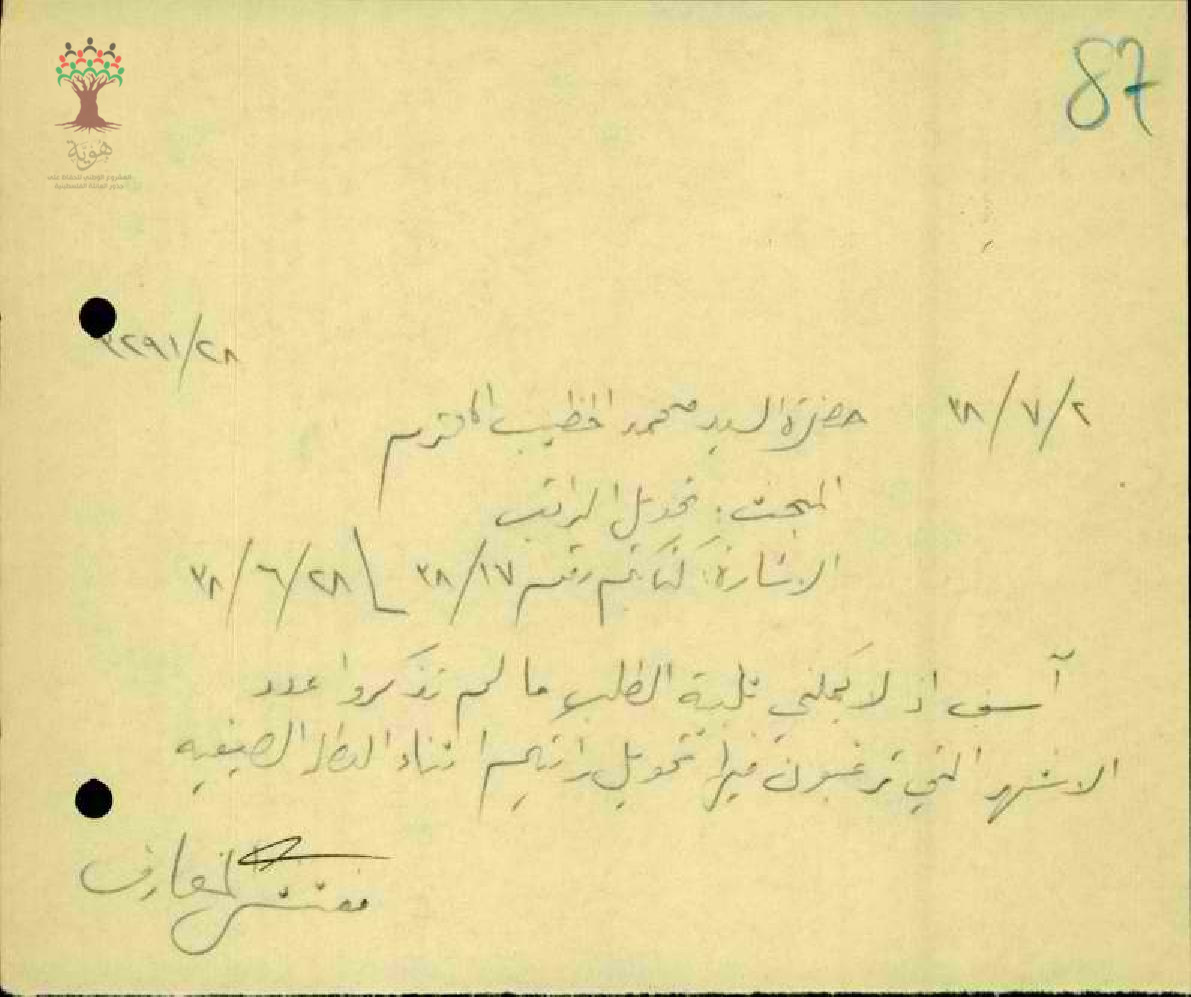 87
هوية
المشروع الوطني للحفاظ على
جذور العائلة الفلسطينية
٣٢٩١/٢٨
٣٨/٧/٢
حضرة السيد محمد الخطيب المحترم
المبحث: تحويل الراتب
الاشارة: كتابكم رقم ٣٨/١٧ ٣٨/٦/٢٨
آسف اذ لا يمكنني تلبية الطلب ما لم تذكروا عدد
الاشهر التي ترغبون فيها تحويل راتبكم اثناء العطلة الصيفيه
مفتش المعارف